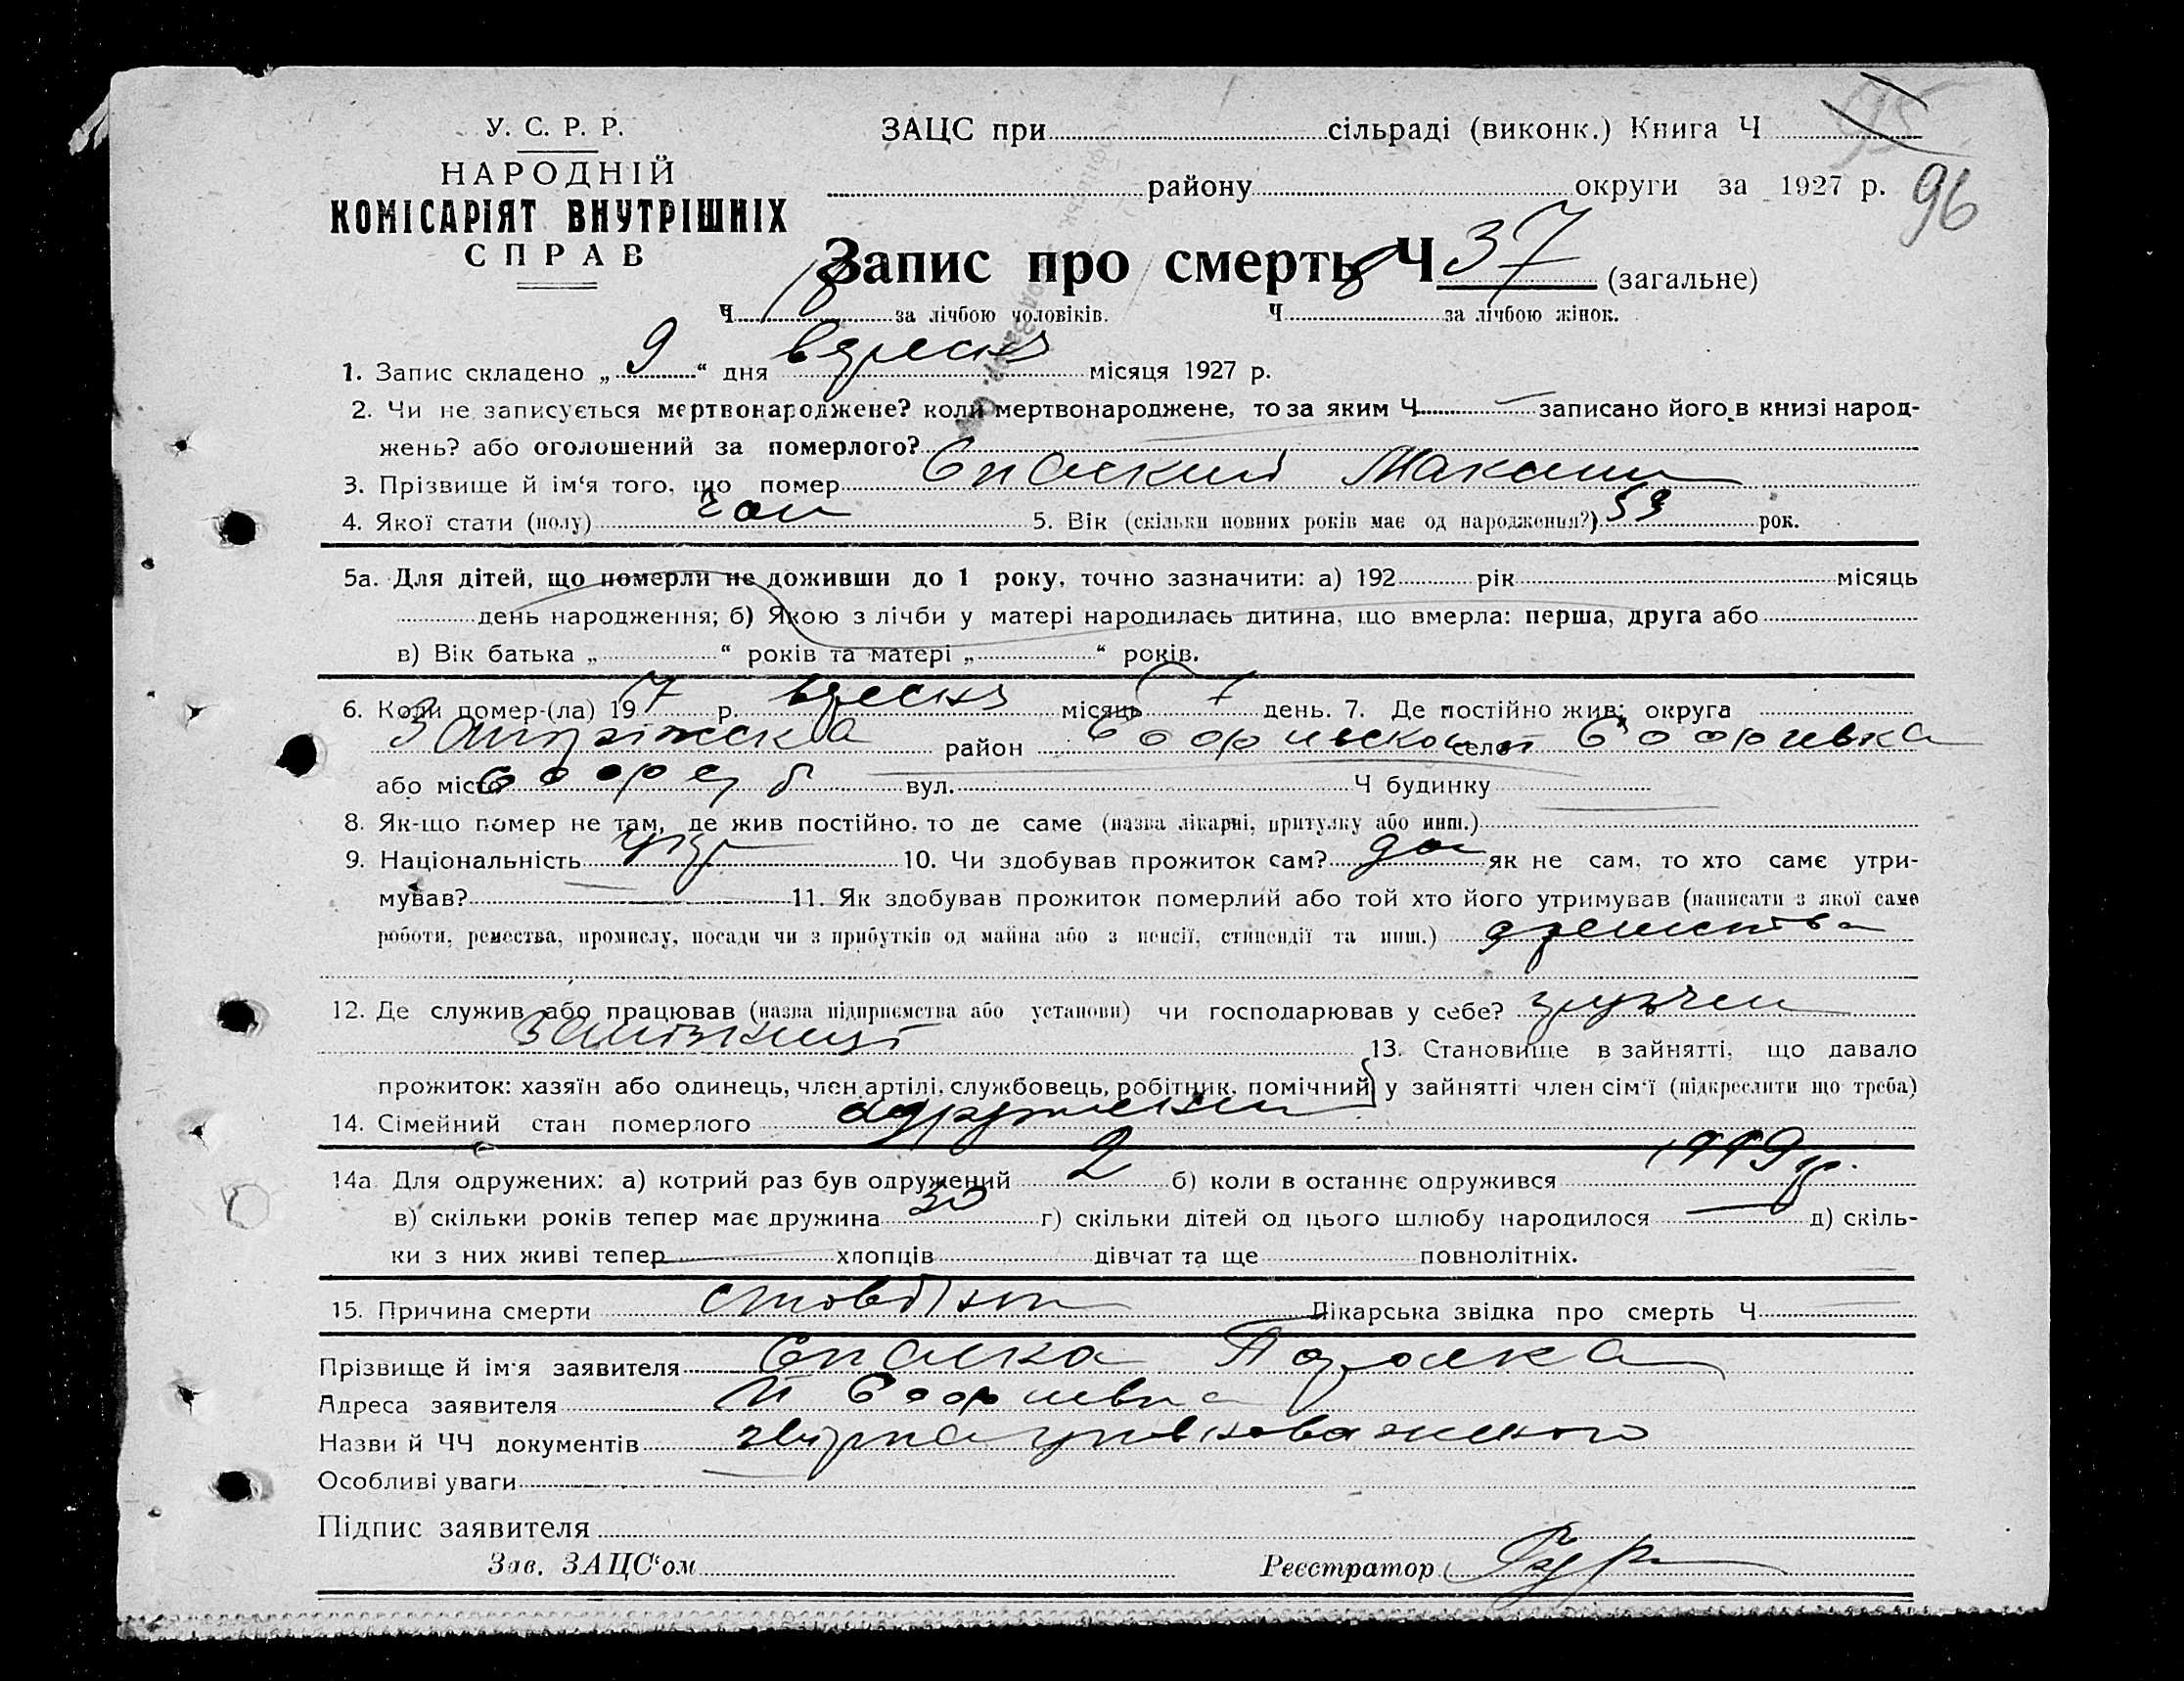 95
У. С. Р. Р.
ЗАЦС при сільраді (виконк.) Книга Ч
НАРОДНІЙ
району округи за 1927 р. 96
КОМІСАРІЯТ ВНУТРІШНІХ
СПРАВ
Запис про смерть Ч 37 (загальне)
Ч за лічбою чоловіків. Ч за лічбою жінок.
1. Запис складено „ 9 “ дня вересня місяця 1927 р.
2. Чи не записується мертвонароджене? коли мертвонароджене, то за яким Ч записано його в книзі народ-
жень? або оголошений за померлого?
3. Прізвище й ім‘я того, що помер Спаский Максим
4. Якої стати (полу) чол 5. Вік (скільки повних років має од народження?) 53 рок.
5а. Для дітей, що померли не доживши до 1 року, точно зазначити: а) 192 рік місяць
день народження; б) Якою з лічби у матері народилась дитина, що вмерла: перша, друга або
в) Вік батька „ “ років та матері „ “ років.
6. Коли помер-(ла) 19 7 р. вересня місяць 7 день. 7. Де постійно жив: округа
Запоріжска район Софиевском село Софиевка
або місто вул. Ч будинку
8. Як-що помер не там, де жив постійно, то де саме (назва лікарні, притулку або инш.)
9. Національність укр 10. Чи здобував прожиток сам? да як не сам, то хто саме утри-
мував? 11. Як здобував прожиток померлий або той хто його утримував (написати з якої саме
роботи, ремества, промислу, посади чи з прибутків од майна або з пенсії, стипендії та инш.)
12. Де служив або працював (назва підприємства або установи) чи господарював у себе?
13. Становище в зайнятті, що давало
прожиток: хазяїн або одинець, член артілі, службовець, робітник, помічний у зайнятті член сім‘ї (підкреслити що треба)
14. Сімейний стан померлого одружени
14а Для одружених: а) котрий раз був одружений 2 б) коли в останнє одружився 1919 р.
в) скільки років тепер має дружина 30 г) скільки дітей од цього шлюбу народилося д) скіль-
ки з них живі тепер хлопців дівчат та ще повнолітніх.
15. Причина смерти Лікарська звідка про смерть Ч
Прізвище й ім‘я заявителя Спаска
Адреса заявителя Софиевка
Назви й ЧЧ документів
Особливі уваги
Підпис заявителя
Зав. ЗАЦС‘ом Реєстратор